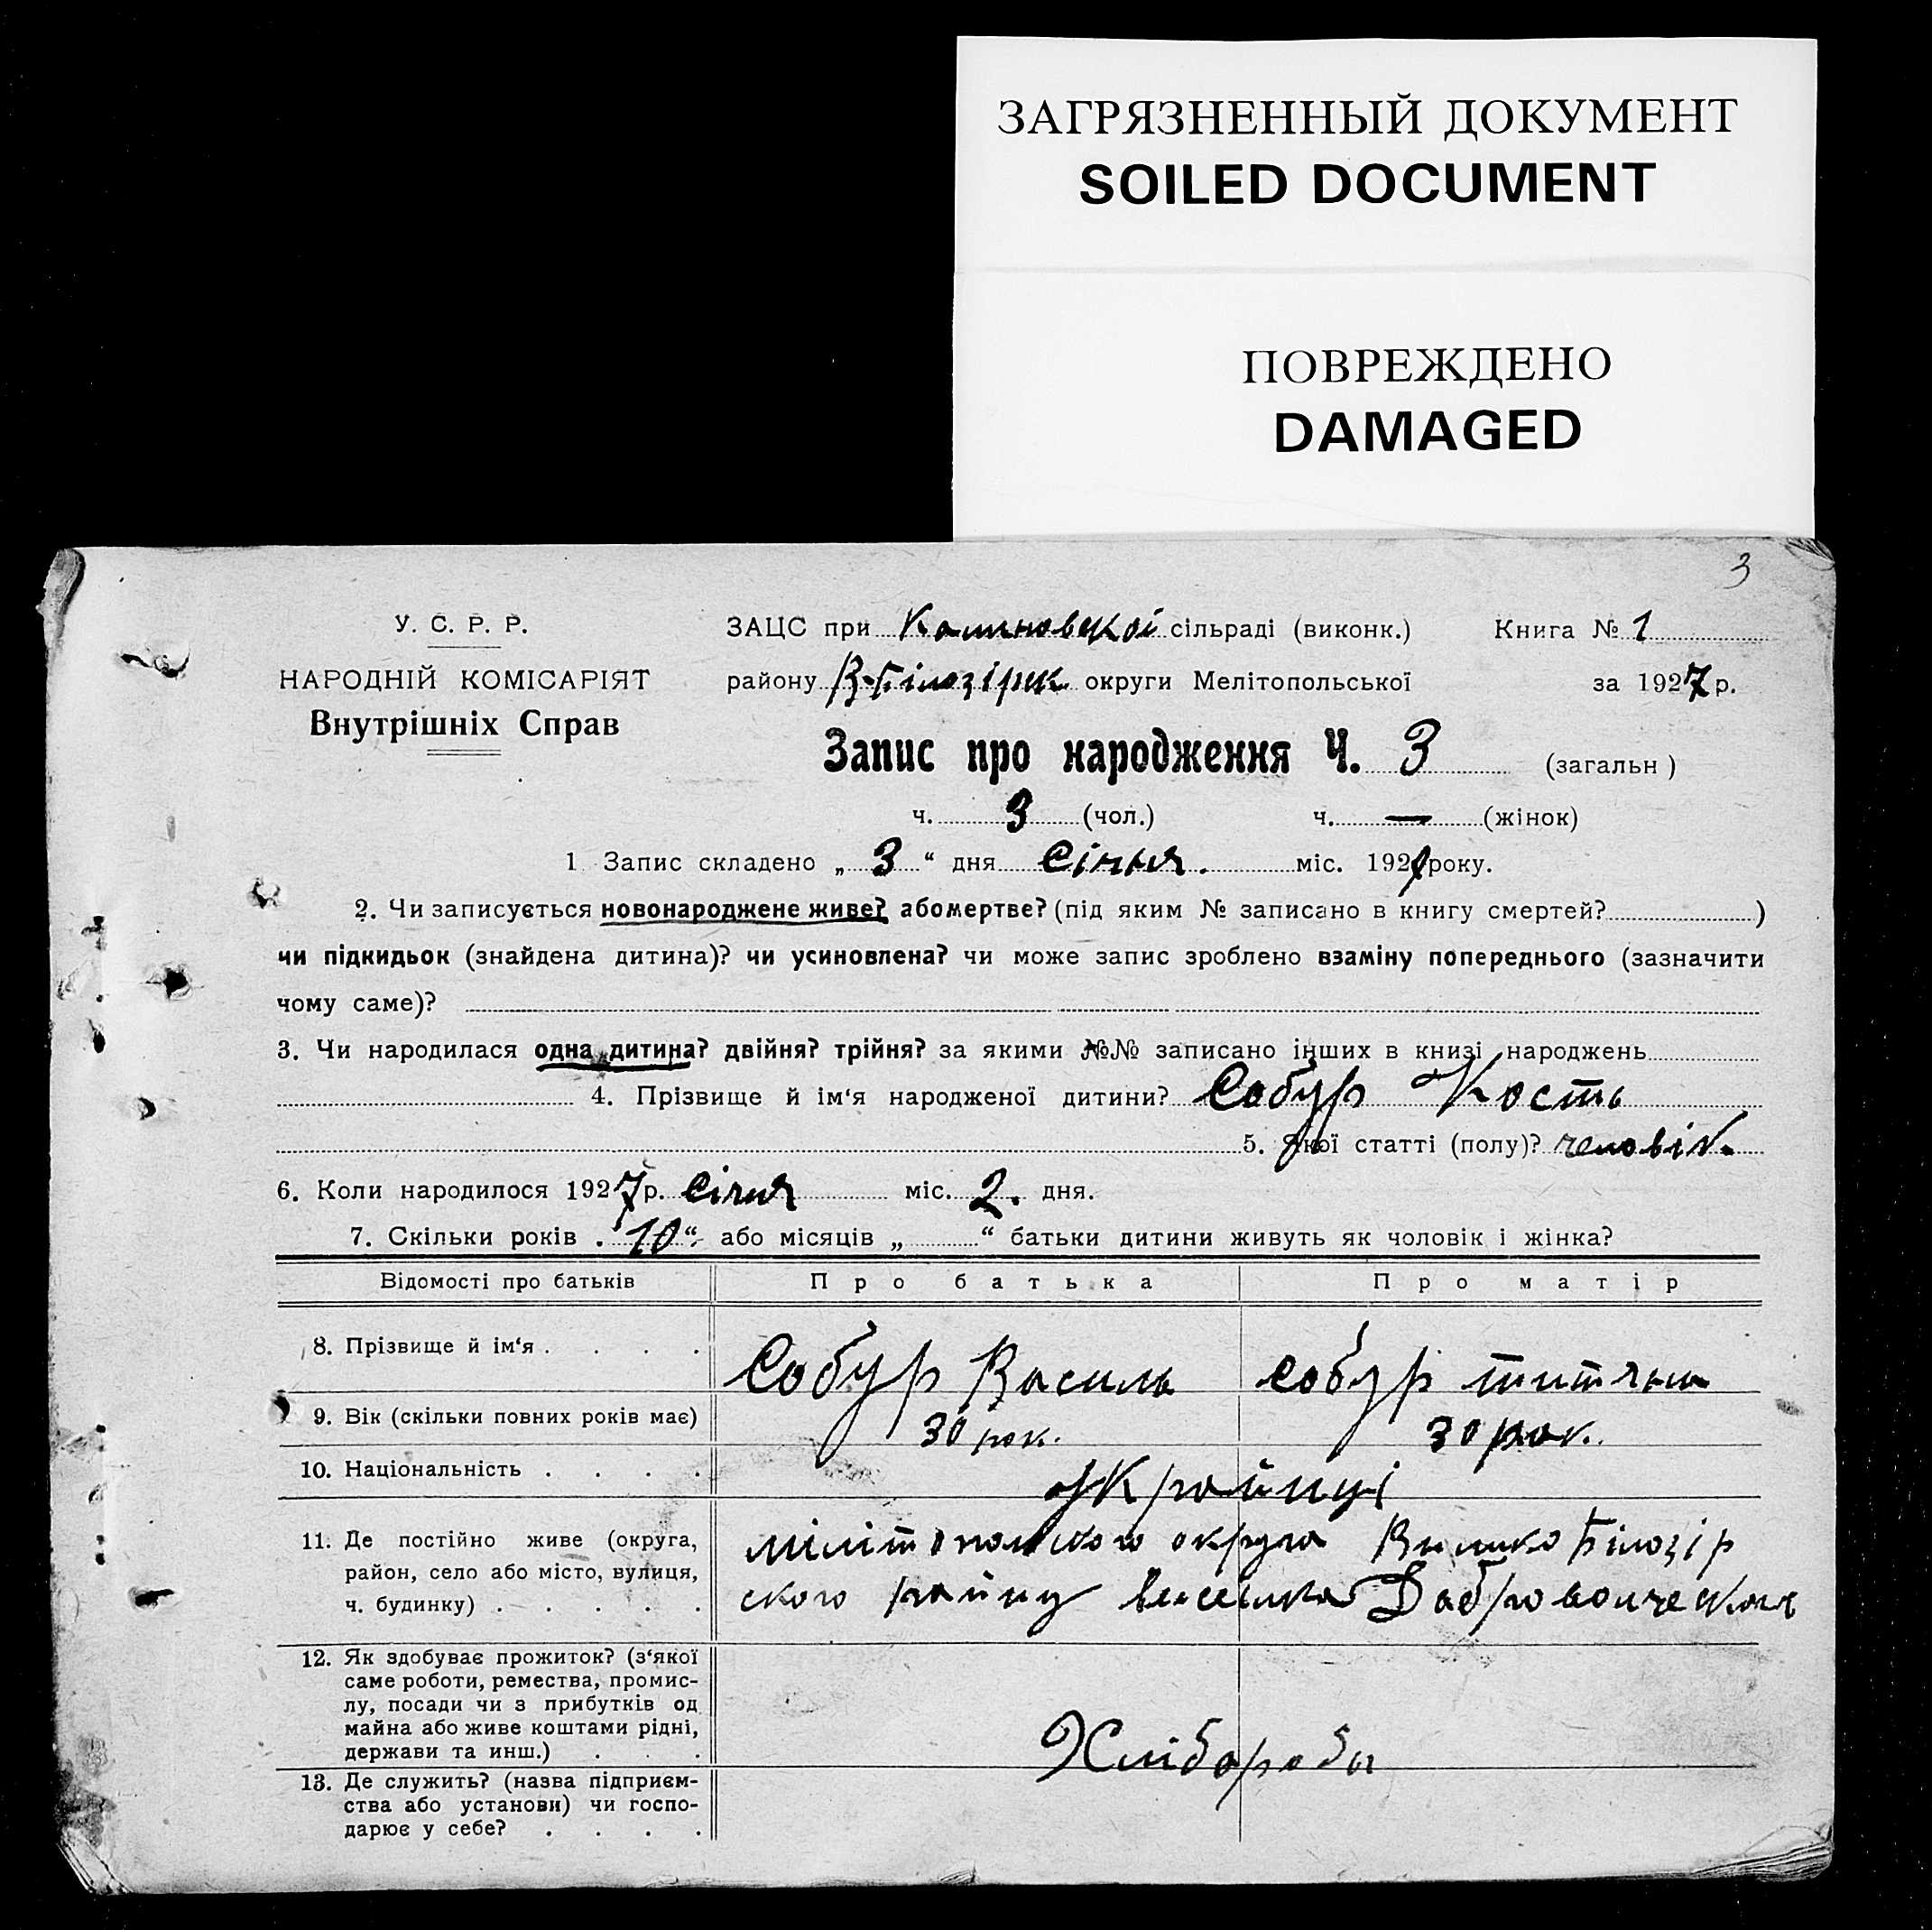 ЗАГРЯЗНЕННЫЙ ДОКУМЕНТ
SOILED DOCUMENT
ПОВРЕЖДЕНО
DAMAGED
3
У. С. Р. Р.
НАРОДНІЙ КОМІСАРІЯТ
Внутрішніх Справ
ЗАЦС при Калиновской сільраді (виконк.) Книга № 1
району В-Білозірк округи Мелітопольської за 1927 р.
Запис про народження Ч. 3 (загальн )
ч. 3 (чол.) ч. — (жінок)
1 Запис складено „ 3 “ дня Січня. міс. 1927 року.
2. Чи записується новонароджене живе? або мертве? (під яким № записано в книгу смертей? )
чи підкидьок (знайдена дитина)? чи усиновлена? чи може запис зроблено взаміну попереднього (зазначити
чому саме)?
3. Чи народилася одна дитина? двійня? трійня? за якими №№ записано інших в книзі народжень
4. Прізвище й ім‘я народженої дитини? Собур Кость
5. Якої статті (полу)? человік.
6. Коли народилося 1927 р. Січня міс. 2. дня.
7. Скільки років „ 10 “ або місяців „ “ батьки дитини живуть як чоловік і жінка?
Відомості про батьків Про батька Про матір
8. Прізвище й ім‘я . . . . Собур Василь Собур Титяна
9. Вік (скільки повних років має) 30 рок. 30 рок.
10. Національність . . . . Украйнці
11. Де постійно живе (округа,
район, село або місто, вулиця,
ч. будинку) . . . . .
Мілітопольского округа Вилико Білозір
ского району виселка Добровольческого
12. Як здобуває прожиток? (з‘якої
саме роботи, ремества, промис-
лу, посади чи з прибутків од
майна або живе коштами рідні,
держави та инш.) . . .
Хлібороби
13. Де служить? (назва підприєм-
ства або установи) чи госпо-
дарює у себе? . . . .